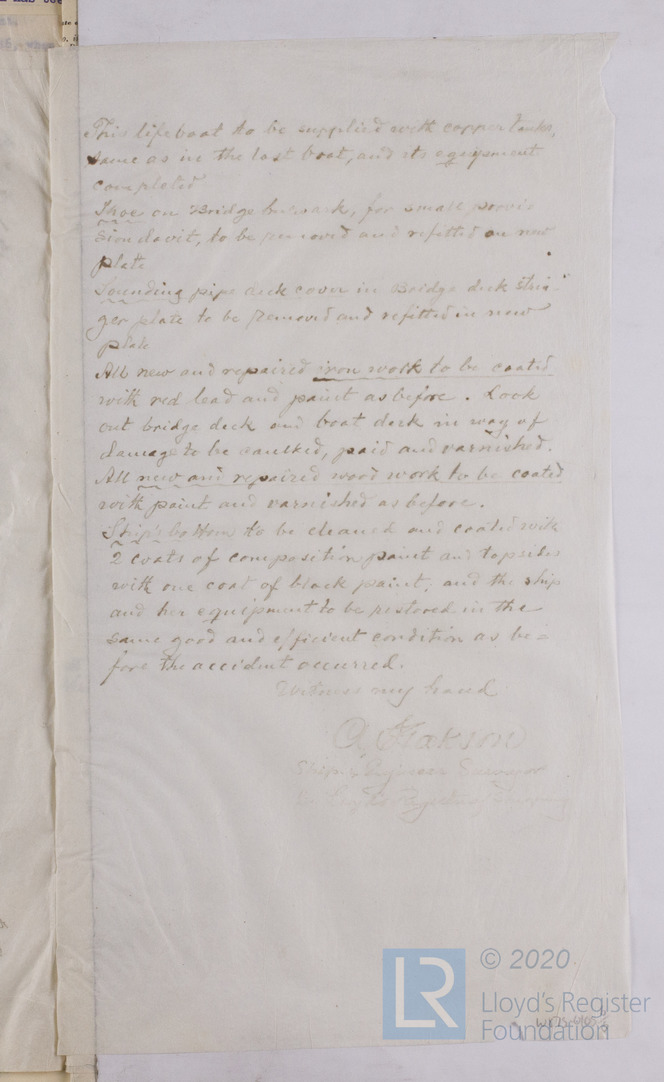 This lifeboat to be supplied with copper tanks,
same as in the last boat, and its equipment
completed
Shoe on Bridge bulwark, for small provi
sion davit, to be removed and refitted on new
plate
Sounding pipe deck cover in Bridge deck strin-
ger plate to be removed and refitted in new
plate
All new and repaired iron work to be coated
with red lead and paint as before. Look
out bridge deck and boat deck in way of
damage to be caulked, paid and varnished.
All new and repaired wood work to be coated
with paint and varnished as before.
Ship's bottom to be cleaned and coated with
2 coats of composition paint and topsides
with one coat of black paint, and the ship
and her equipment to be restored in the
same good and efficient condition as be=
fore the accident occurred.
Witness my hand
Ship & Engineer Surveyor
to Lloyd's Register of Shipping
© 2020
LR
Lloyd's Register
Foundation